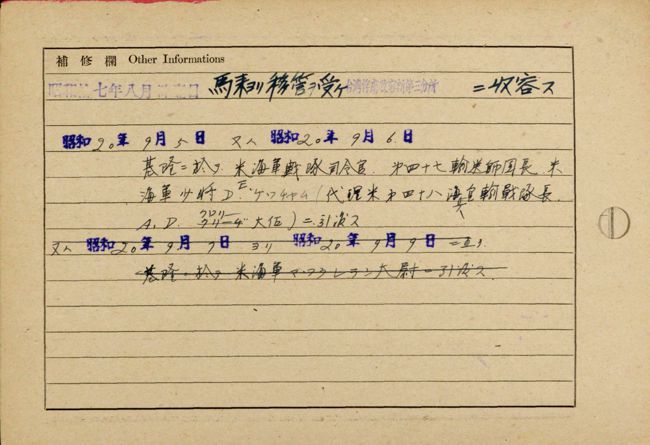 補修欄 Other Informations
昭和拾七年八月 日 馬来ヨリ移管ヲ受ケ台湾俘虜収容所第三分所ニ収容ス
昭和20年9月5日 又ハ 昭和20年9月6日
基隆ニ於テ米海軍戦隊司令官 第四十七輸送師団長 米
海軍少将 D・E・ケッチャム(代理米第四十八海兵輸戦隊長
A. D. クロリー 大佐)ニ引渡ス
又ハ 昭和20年9月7日 ヨリ 昭和20年9月9日ニ亘リ
基隆ニ於テ米海軍 大尉ニ引渡ス